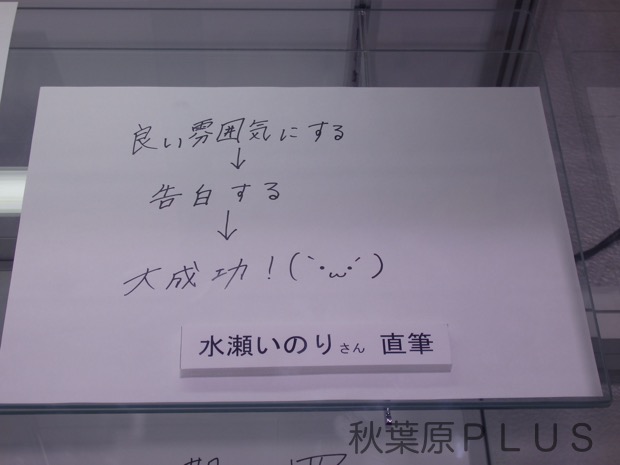 良い雰囲気にする
↓
告白する
↓
大成功！(｀･ω･´)
水瀬いのりさん 直筆
秋葉原PLUS